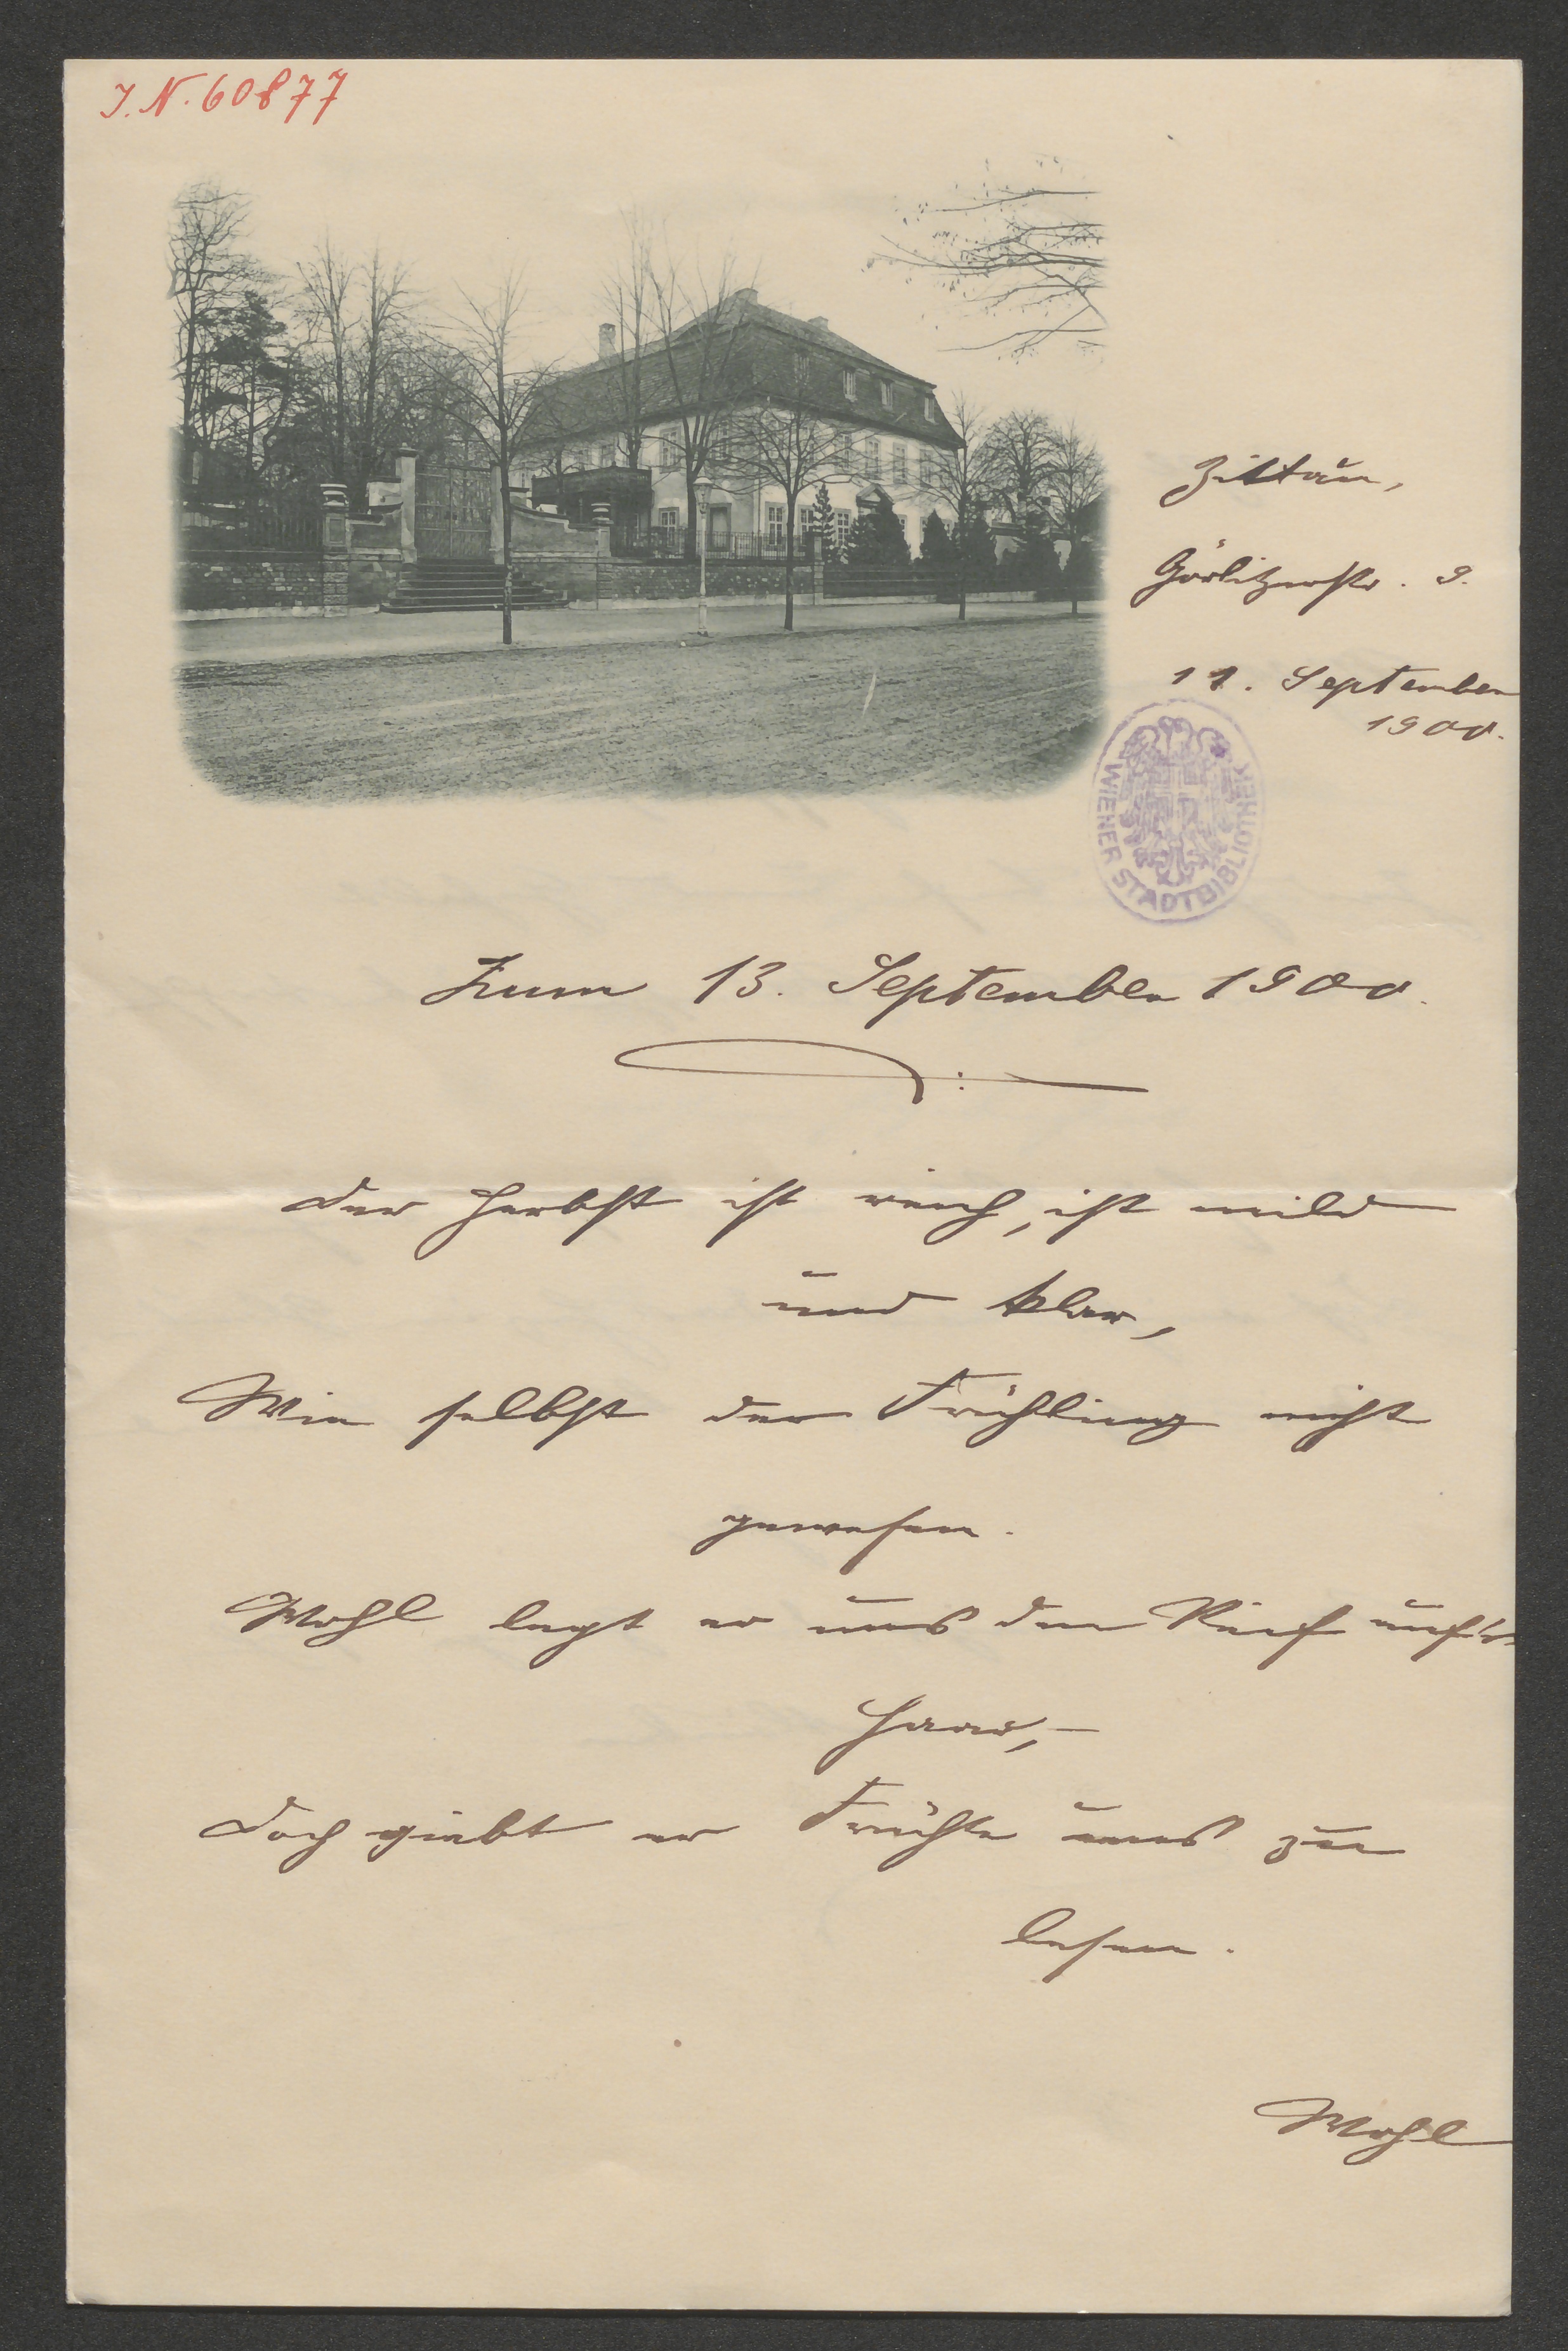 J. N. 60877
Zittau,
Görlitzerstr. 9.
11. September
1900.
WIENER STADTBIBLIOTHEK
Zum 13. September 1900.
Der Herbst ist reich, ist mild
und klar,
Wie selbst der Frühling nicht
gewesen.
Wohl legt er uns den Reif auf's
Haar, –
Doch giebt er Früchte uns zu
lesen.
Wohl